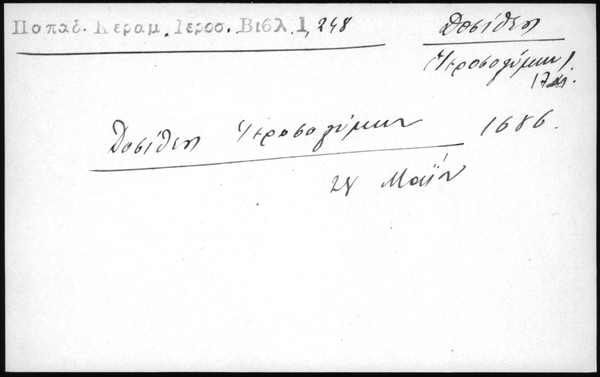 Παπαδ. Κεραμ. Ιεροσ. Βιβλ. 1, 248
Δοσίθεου
Ἱεροσολύμων
Δοσίθεου Ἱεροσολύμων 1686.
28 Μαΐου